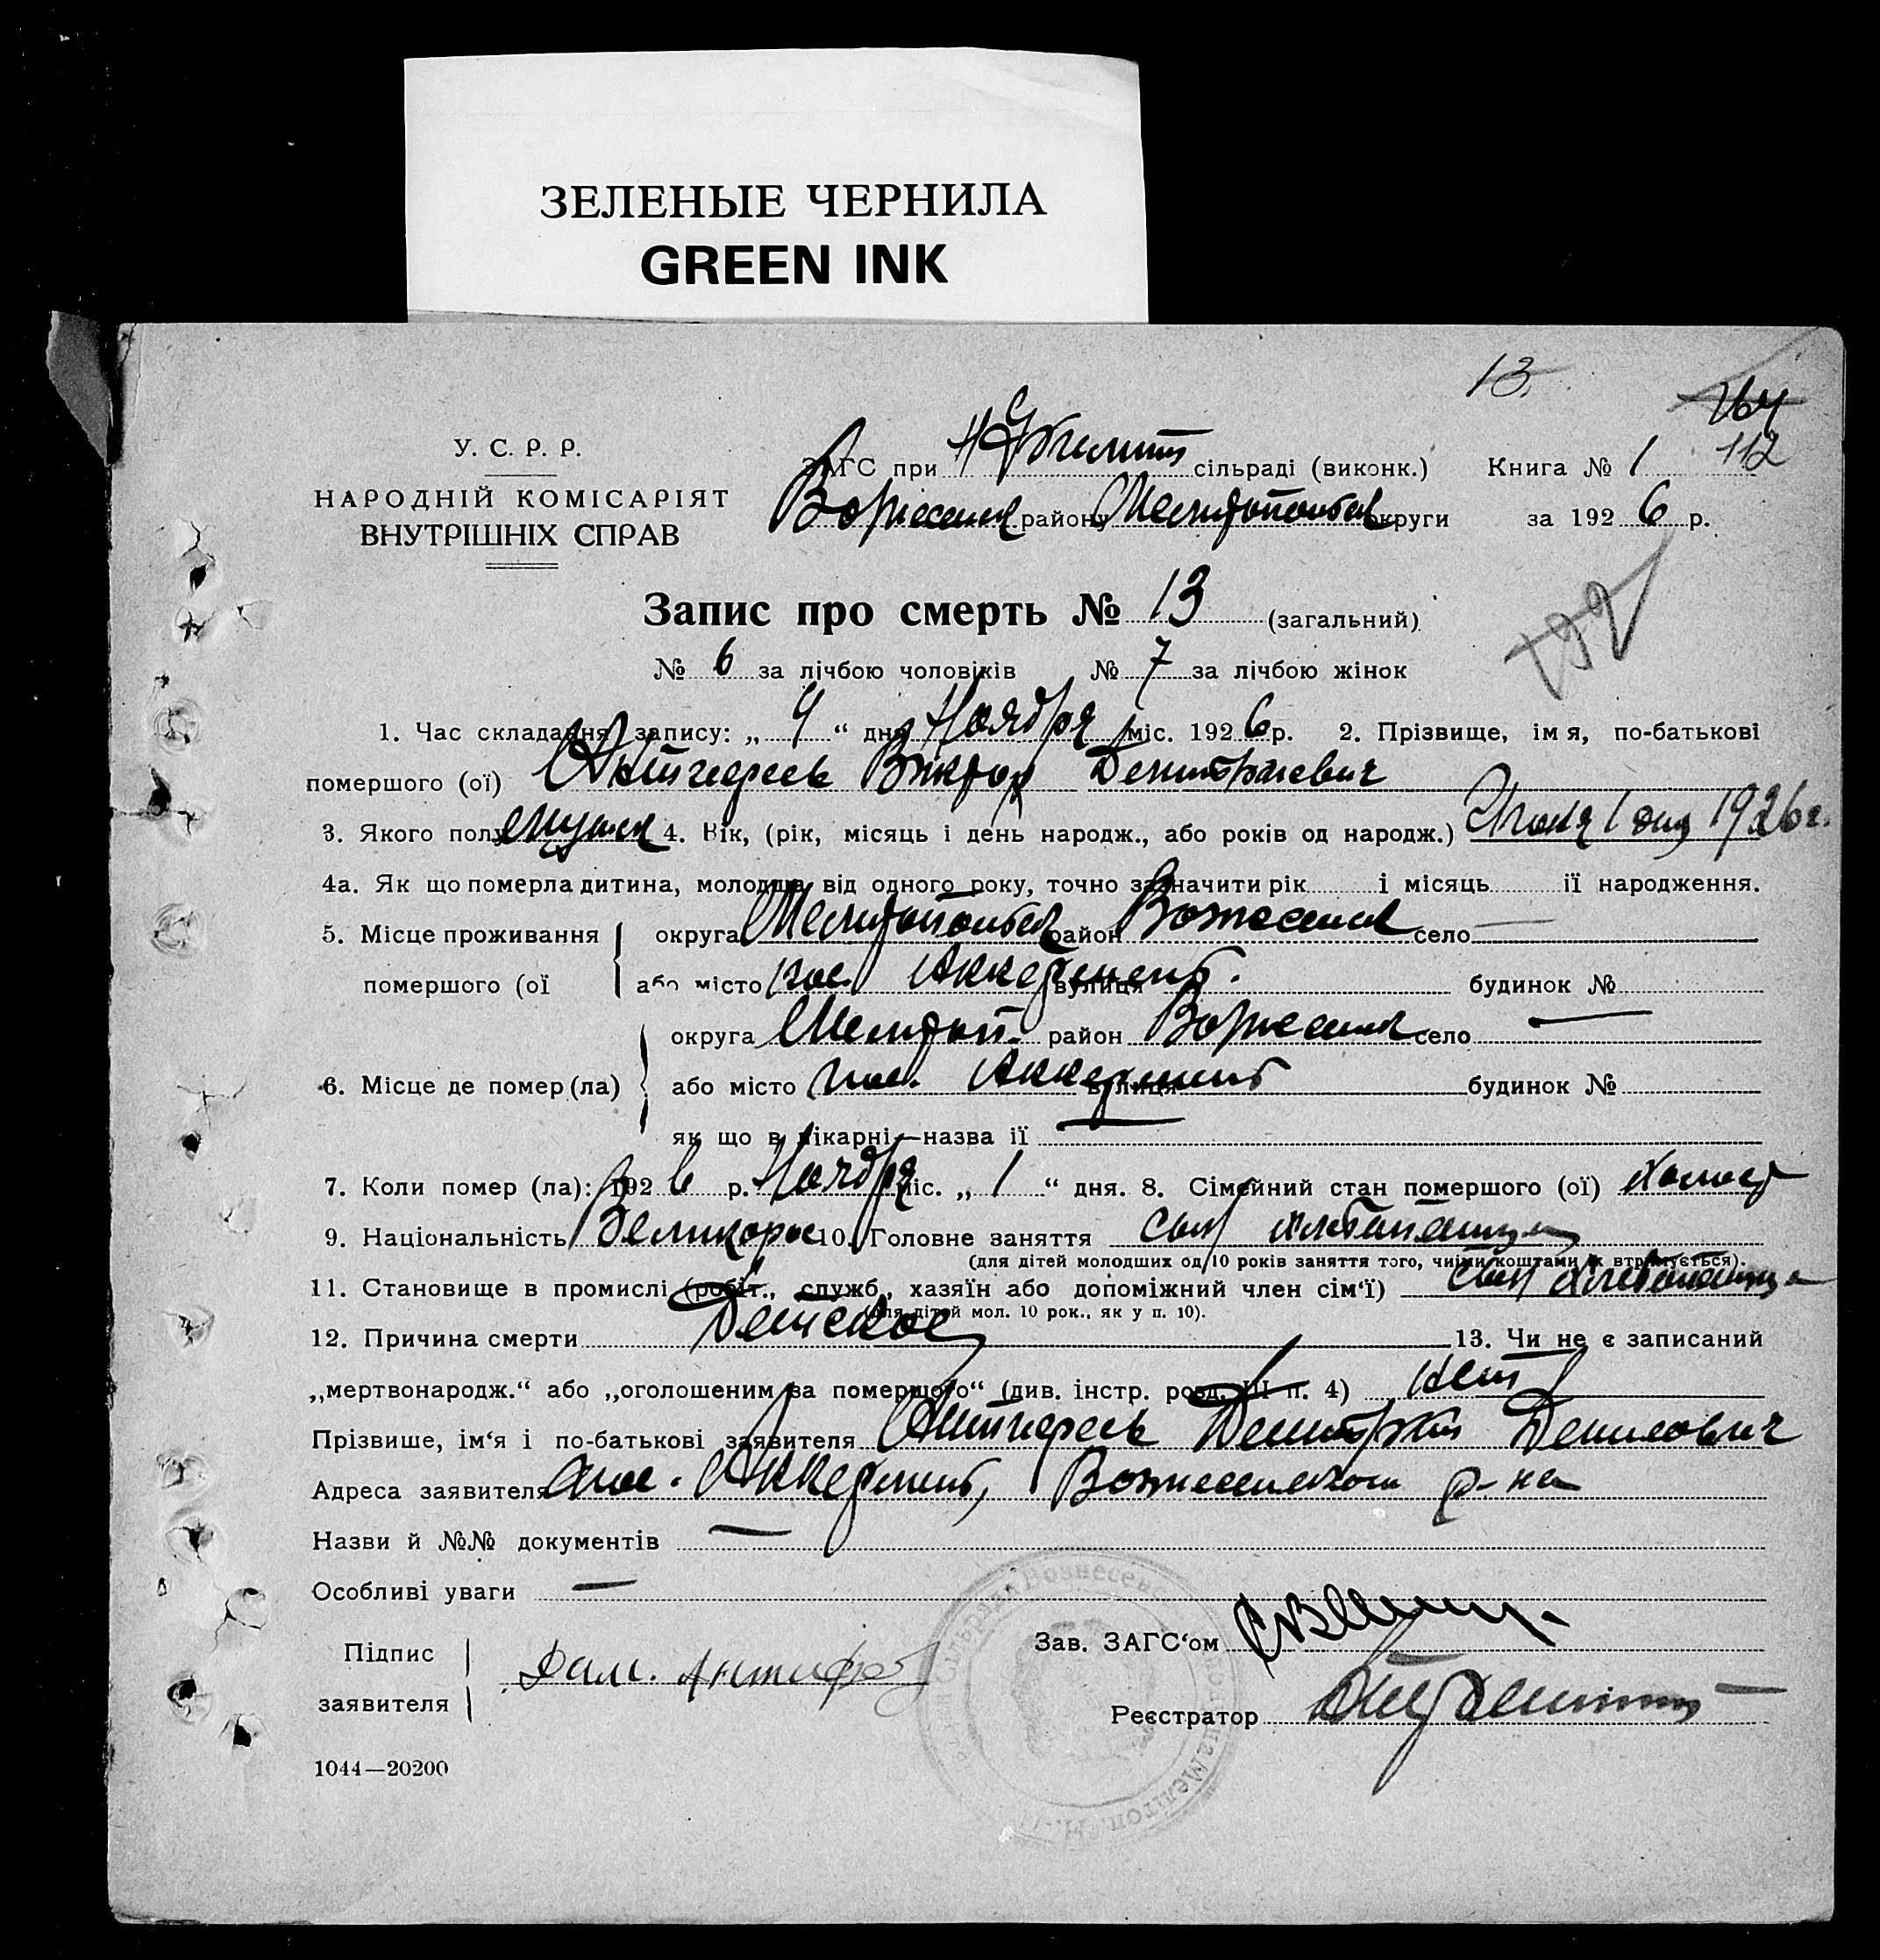 ЗЕЛЕНЫЕ ЧЕРНИЛА
GREEN INK
13.
764
112
У. С. Р. Р.
НАРОДНІЙ КОМІСАРІЯТ
ВНУТРІШНІХ СПРАВ
ЗАГС при сільраді (виконк.) Книга № 1
Вознесенск району Мелитопольск округи за 1926 р.
Запис про смерть № 13 (загальний)
№ 6 за лічбою чоловіків № 7 за лічбою жінок
1. Час складання запису: „ 4 “ дня Ноября міс. 1926 р. 2. Прізвище, імя, по-батькові
помершого (ої) Виктор Дмитриевич
3. Якого полу мужск 4. Вік, (рік, місяць і день народж., або років од народж.) 1 дня 1926 г.
4а. Як що померла дитина, молодша від одного року, точно зазначити рік і місяць її народження.
5. Місце проживання округа Мелитопольск район Вознесенск село —
помершого (ої або місто пос. Аккермень. вулиця будинок №
округа Мелитоп. район Вознесенск село —
6. Місце де помер (ла) або місто пос. Аккермень вулиця будинок №
як що в лікарні—назва її —
7. Коли помер (ла): 1926 р. Ноября міс. „ 1 “ дня. 8. Сімейний стан помершого (ої) холост
9. Національність Великорос 10. Головне заняття сын хлебопашца
(для дітей молодших од 10 років заняття того, чиїми коштами їх втримується).
11. Становище в промислі (робіт., служб., хазяїн або допоміжний член сім‘ї) сын хлебопашца
(для дітей мол. 10 рок., як у п. 10).
12. Причина смерти Детское 13. Чи не є записаний
„мертвонародж.“ або „оголошеним за померщого“ (див. інстр. розд. III п. 4) нет
Прізвише, ім‘я і по-батькові заявителя Дмитрий
Адреса заявителя пос. Аккермень, Вознесенского р-на
Назви й №№ документів —
Особливі уваги —
Підпис
заявителя
Зав. ЗАГС‘ом
Реєстратор
1044—20200